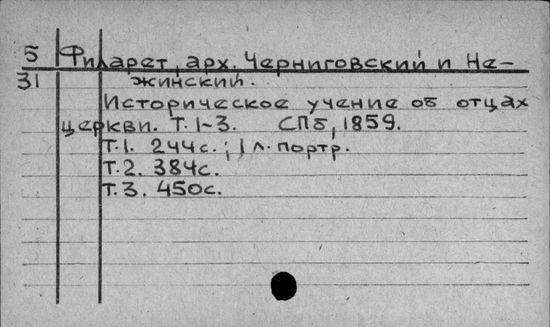 5 Филарет, арх. Черниговский и Не-
31 жинский.
Историческое учение об отцах
церкви. Т.1-3. СПб, 1859.
Т.1. 244с.; 1 л. портр.
Т.2. 384с.
Т.3. 450с.